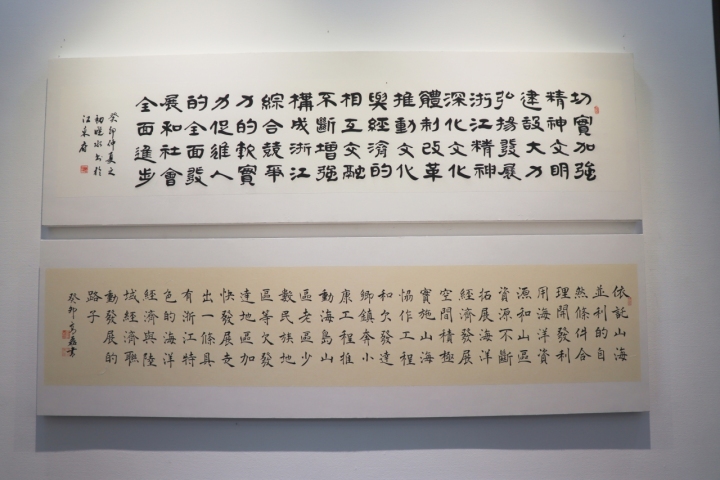 切實加強
精神文明
建設大力
弘揚發展
浙江精神
深化文化
體制改革
推動文化
與經濟的
相互交融
不斷增強
構成浙江
綜合競爭
力的軟實
力促進人
的全面發
展和社會
全面進步
癸卯仲夏之
初曉水書於
依託山海
並利的自
然條件合
理開發利
用海洋資
源和山區
資源不斷
拓展海洋
經濟發展
空間積極
實施山海
協作工程
和欠發達
鄉鎮奔小
康工程推
動海島山
區老區少
數民族地
區等欠發
達地區加
快發展走
出一條具
有浙江特
色的海洋
經濟與陸
域經濟聯
動發展的
路子
癸卯書